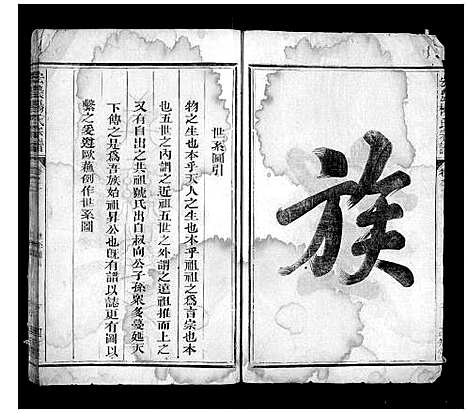 族
世系圖引
物之生也本乎天人之生也本乎祖祖之爲言宗也本
也五世之內謂之近祖五世之外謂之遠祖推而上之
又有自出之共祖號氏出自叔向公子孫衆多蔓延天
下傳之是爲吾族始祖昇公也旣有譜以誌更有圖以
繫之爰遊歐蘇例作世系圖